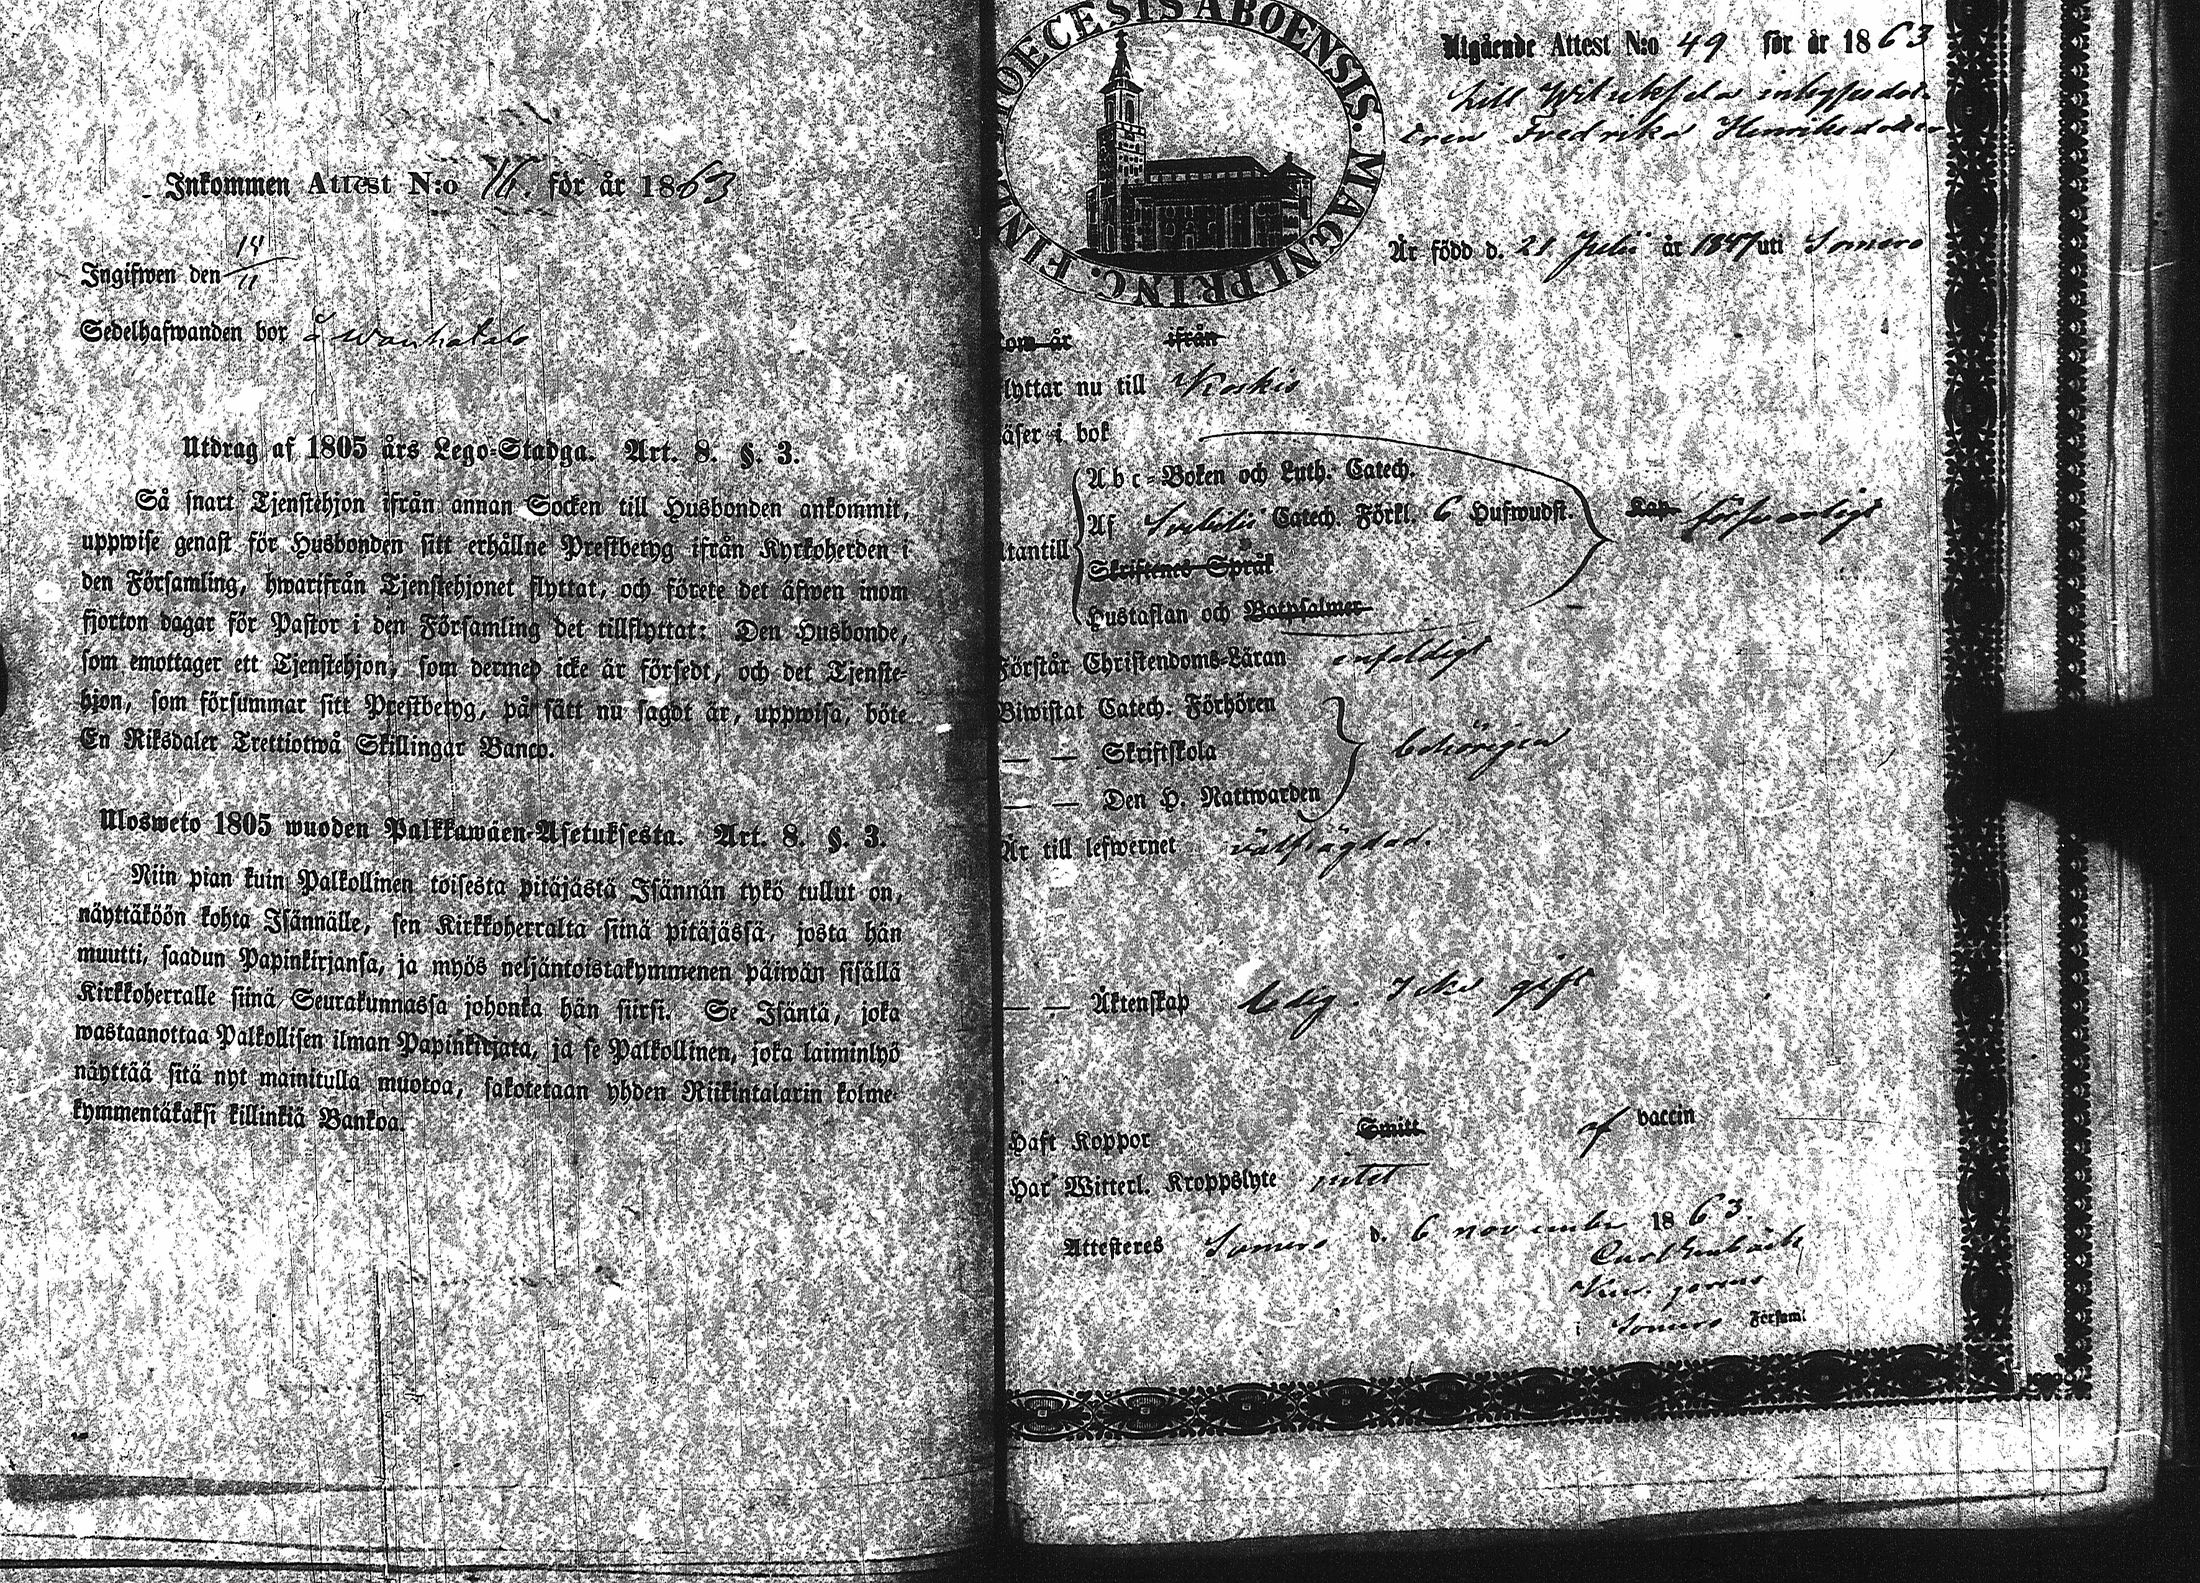 Inkommen Attest N:o 76. för år 1863
Ingifwen den 14/11
Sedelhafwanden bor å Wanhatalo
Utdrag af 1805 års Lego-Stadga. Art. 8. §. 3.
Så snart Tjenstehjon ifrån annan Socken till Husbonden ankommit,
uppwise genast för Husbonden sitt erhållne Prestbetyg ifrån Kyrkoherden i
den Församling, hwarifrån Tjenstehjonet flyttat, och förete det äfwen inom
fjorton dagar för Pastor i den Församling det tillflyttat: Den Husbonde,
som emottager ett Tjenstehjon, som dermed icke är försedt, och det Tjenste-
hjon, som försummar sitt Prestbetyg, på sätt nu sagdt är, uppwisa, böte
En Riksdaler Trettiotwå Skillingar Banco.
Ulosweto 1805 wuoden Palkkawäen-Asetuksesta. Art. 8. §. 3.
Niin pian kuin Palkollinen toisesta pitäjästä Isännän tykö tullut on,
näyttäköön kohta Isännälle, sen Kirkkoherralta siinä pitäjässä, josta hän
muutti, saadun Papinkirjansa, ja myös neljäntoistakymmenen päiwän sisällä
Kirkkoherralle siinä Seurakunnassa johonka hän siirsi. Se Isäntä, joka
wastaanottaa Palkollisen ilman Papinkirjata, ja se Palkollinen, joka laiminlyö
näyttää sitä nyt mainitulla muotoa, sakotetaan yhden Riikintalarin kolme-
kymmentäkaksi killinkiä Bankoa.
DIOECESIS ABOENSIS. MAGNI PRINC. FINL.
Utgående Attest N:o 49 för år 1863
till
Fredrika Henriksdotter
Är född d. 21 Julii år 1847 uti Somero
kom år ifrån
lyttar nu till Koskis
äser i bok
Abc-Boken och Luth. Catech.
Af Catech. Förkl. 6 Hufwudst. Kap försvarligt
tantill
Skriftenes Språk
Hustaflan och Botpsalmer
Förstår Christendoms-Läran enfaldigt
Biwistat Catech. Förhören
— — Skriftskola behörigen
— — Den H. Nattwarden
Är till lefwernet välfrägdad.
— — Äktenskap ledig. Icke gift
Haft Koppor Smitt af vaccin
Har Witterl. Kroppslyte intet
Attesteres Somero d. 6 november 1863.
i Somero Församl.